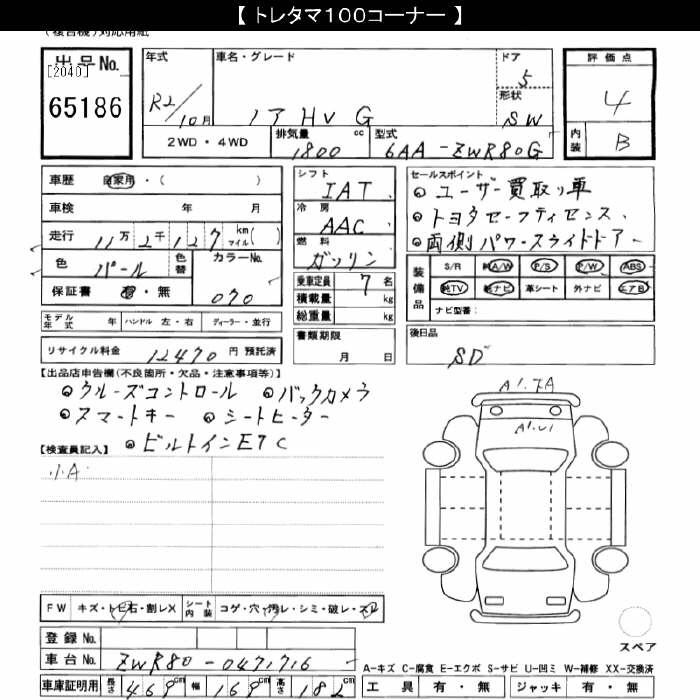 【 トレタマ100コーナー 】
(複合機)対応用紙
出品No.
[2040]
65186
年式
R2/10月
車名・グレード
ノア HV G
ドア
5
形状
SW
評価点
4
内装
B
2WD・4WD
排気量 cc
1800
型式
6AA-ZWR80G
車歴 自家用・( )
車検 年 月
走行 11万2千127 km マイル( )
色 パール 色替 カラーNo.
070
保証書 有・無
シフト
IAT
冷房
AAC
燃料
ガソリン
乗車定員 7 名
積載量 kg
総重量 kg
セールスポイント
◎ユーザー買取り車
◎トヨタセーフティセンス、
◎両側パワースライドドアー
装備品
S/R 純A/W P/S P/W ABS
純TV 純ナビ 革シート 外ナビ エアB
ナビ型番:
モデル年式 年 ハンドル 左・右 ディーラー・並行
書類期限
月 日
後日品
SD
リサイクル料金 12470 円 預託済
【出品店申告欄(不良箇所・欠品・注意事項等)】
◎クルーズコントロール ◎バックカメラ
◎スマートキー ◎シートヒーター
◎ビルトインETC
【検査員記入】
小A
A1.
A1.U1
FW キズ・トビ石・割レX シート内装 コゲ・穴・汚レ・シミ・破レ・スレ
登録No.
車台No. ZWR80-0471716
車庫証明用 長さ 469cm 幅 169cm 高さ 182cm
スペア
A-キズ C-腐食 E-エクボ S-サビ U-凹ミ W-補修 XX-交換済
工具 有・無 ジャッキ 有・無